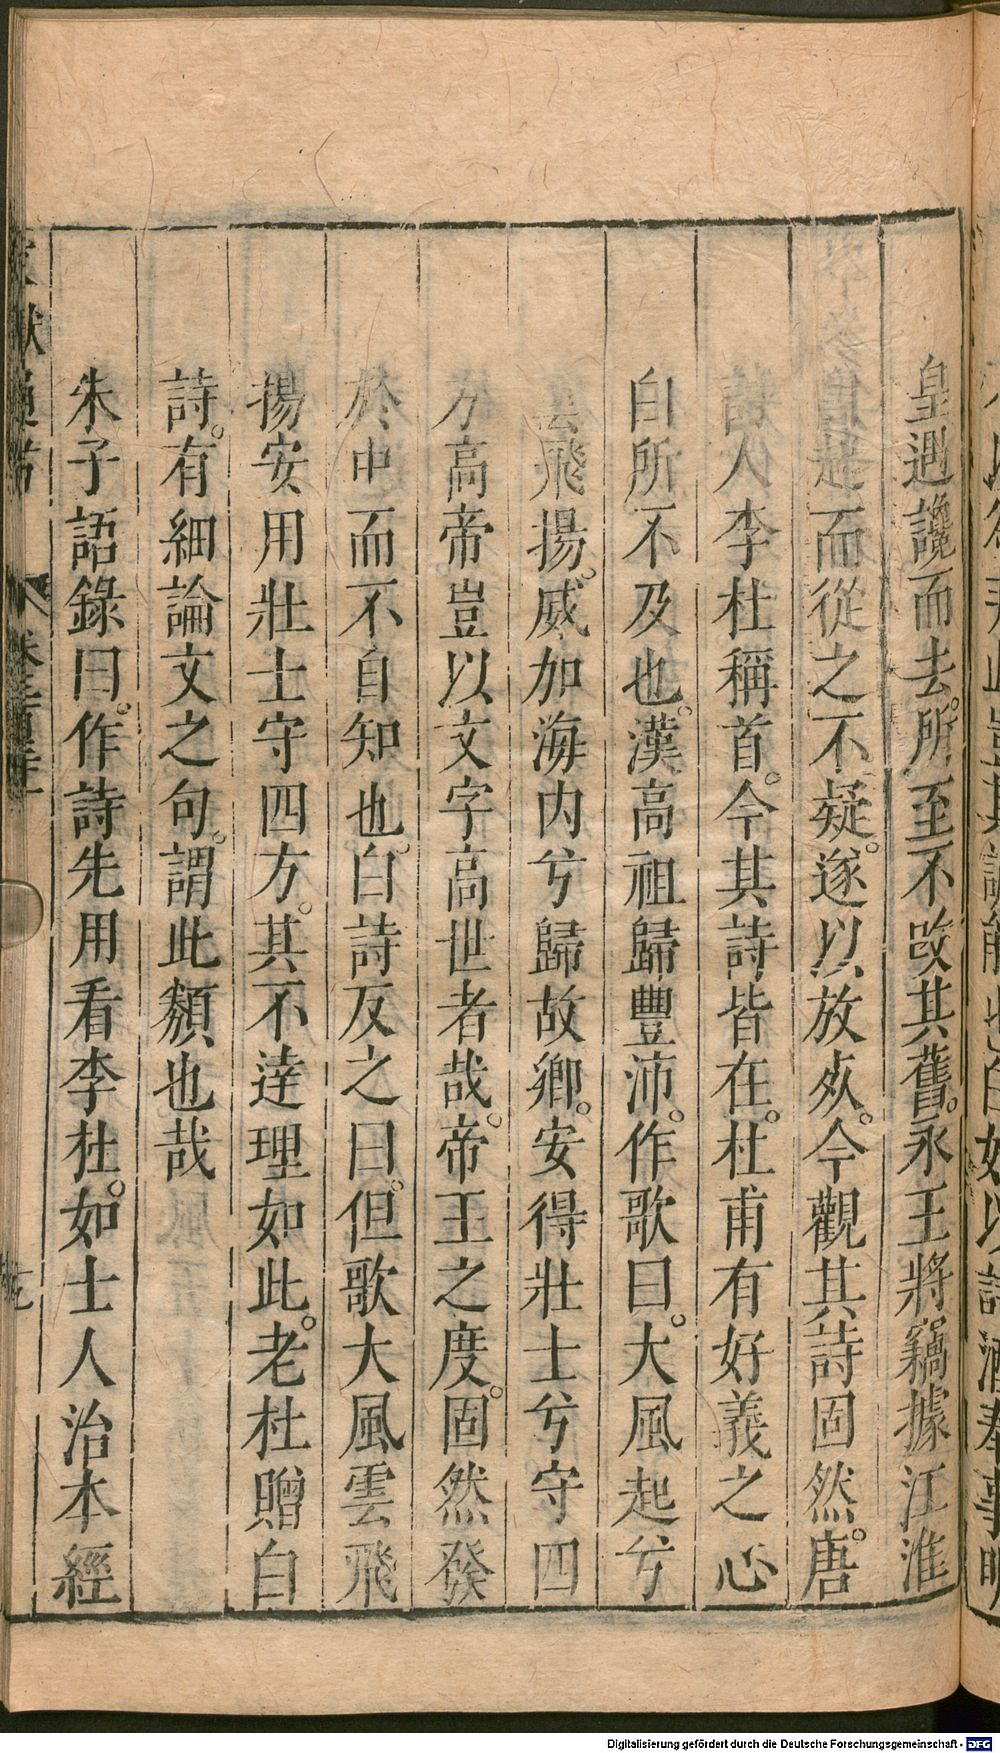 皇遇讒而去。所至不改其舊。永王將竊據江淮
白起而從之不疑。遂以放死。今觀其詩固然。唐
詩人李杜稱首。今其詩皆在。杜甫有好義之心
白所不及也。漢高祖歸豐沛。作歌曰。大風起兮
雲飛揚。威加海内兮歸故鄉。安得壯士兮守四
方高帝豈以文字高世者哉。帝王之度。固然發
於中而不自知也。白詩反之曰。但歌大風雲飛
揚安用壯士守四方。其不達理如此。老杜贈白
詩。有細論文之句。謂此類也哉
朱子語錄曰。作詩先用看李杜。如士人治本經
Digitalisierung gefördert durch die Deutsche Forschungsgemeinschaft - DFG